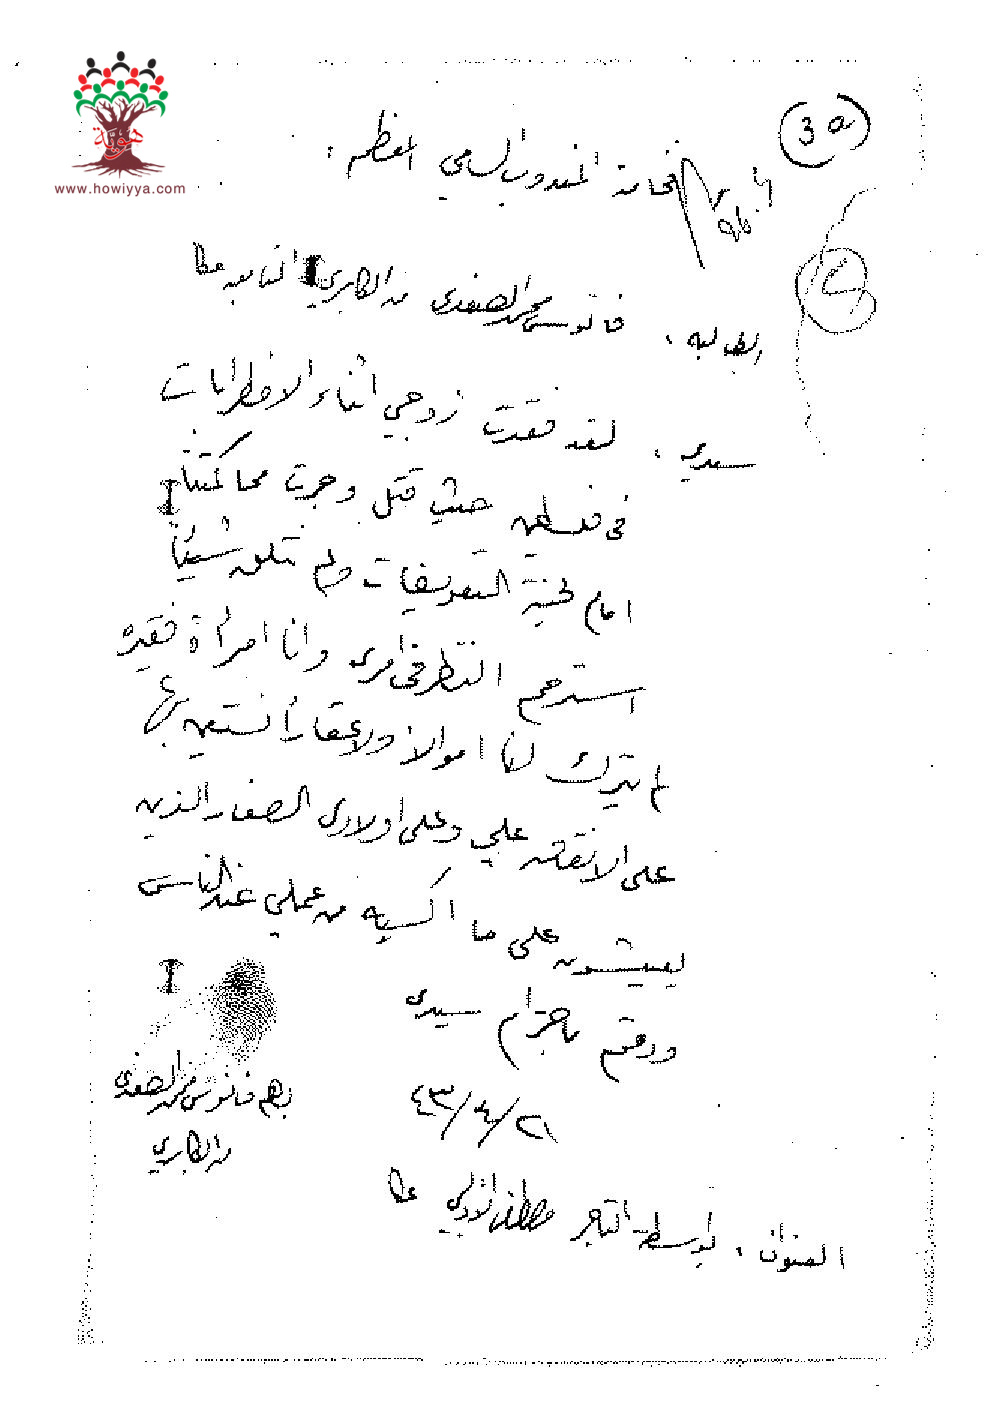 هوية
www.howiyya.com
3a
فخامة المندوب السامي المعظم،
الطالبه، فانوس محمد الصفدي من الكابري التابعه عكا
سيدي، لقد فقدت زوجي اثناء الاضطرابات
في فلسطين حيث قتل وجرت محاكمتنا
امام لجنة التعويضات ولم نتلق شيئاً
استرحم النظر في امري وانا امرأة فقيره
لم يترك لنا اموالا ولا عقاراً نستعين بها
على الانفاق علي وعلى اولادي الصغار الذين
يعيشون على ما اكسبه من عملي عند الناس
ودمتم باحترام سيدي
٤٣/٤/٢١
بصم فانوس محمد الصفدي
من الكابري
العنوان، بواسطة التاجر مصطفى عكا